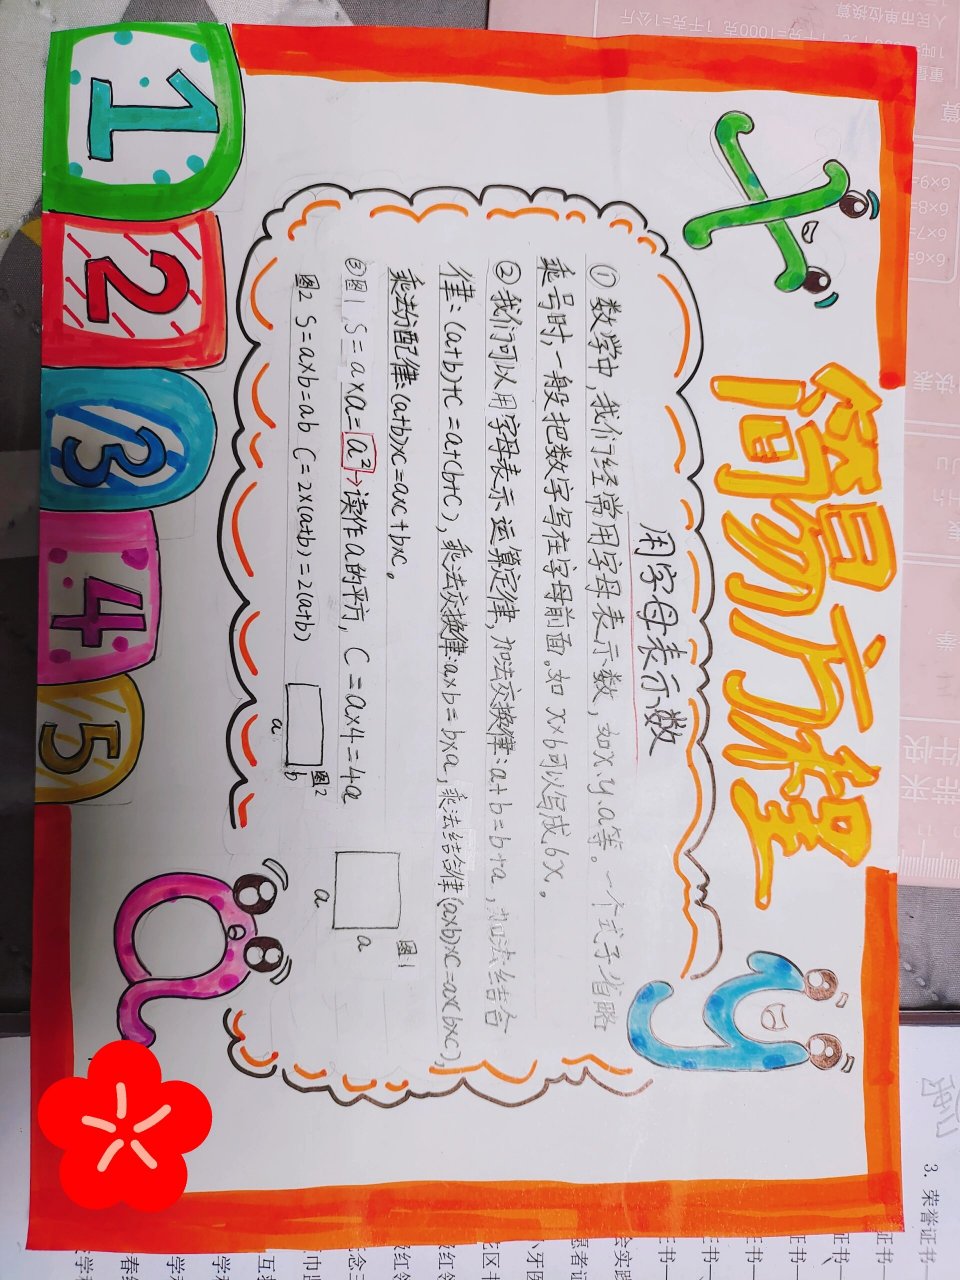 简易方程
x
y
a
1
2
3
4
5
用字母表示数
①数学中,我们经常用字母表示数,如x、y、a等。一个式子省略
乘号时,一般把数字写在字母前面。如x×6可以写成6x。
②我们可以用字母表示运算定律,加法交换律:a+b=b+a,加法结合
律:(a+b)+c=a+(b+c),乘法交换律:a×b=b×a,乘法结合律(a×b)×c=a×(b×c),
乘法分配律:(a+b)×c=a×c+b×c。
③图1 S=a×a=a²→读作a的平方, C=a×4=4a
图2 S=a×b=ab C=2×(a+b)=2(a+b)
图1
a
a
图2
a
b
3. 荣誉证书
人民币单位换算
6×6=
6×7=
6×8=
6×9=